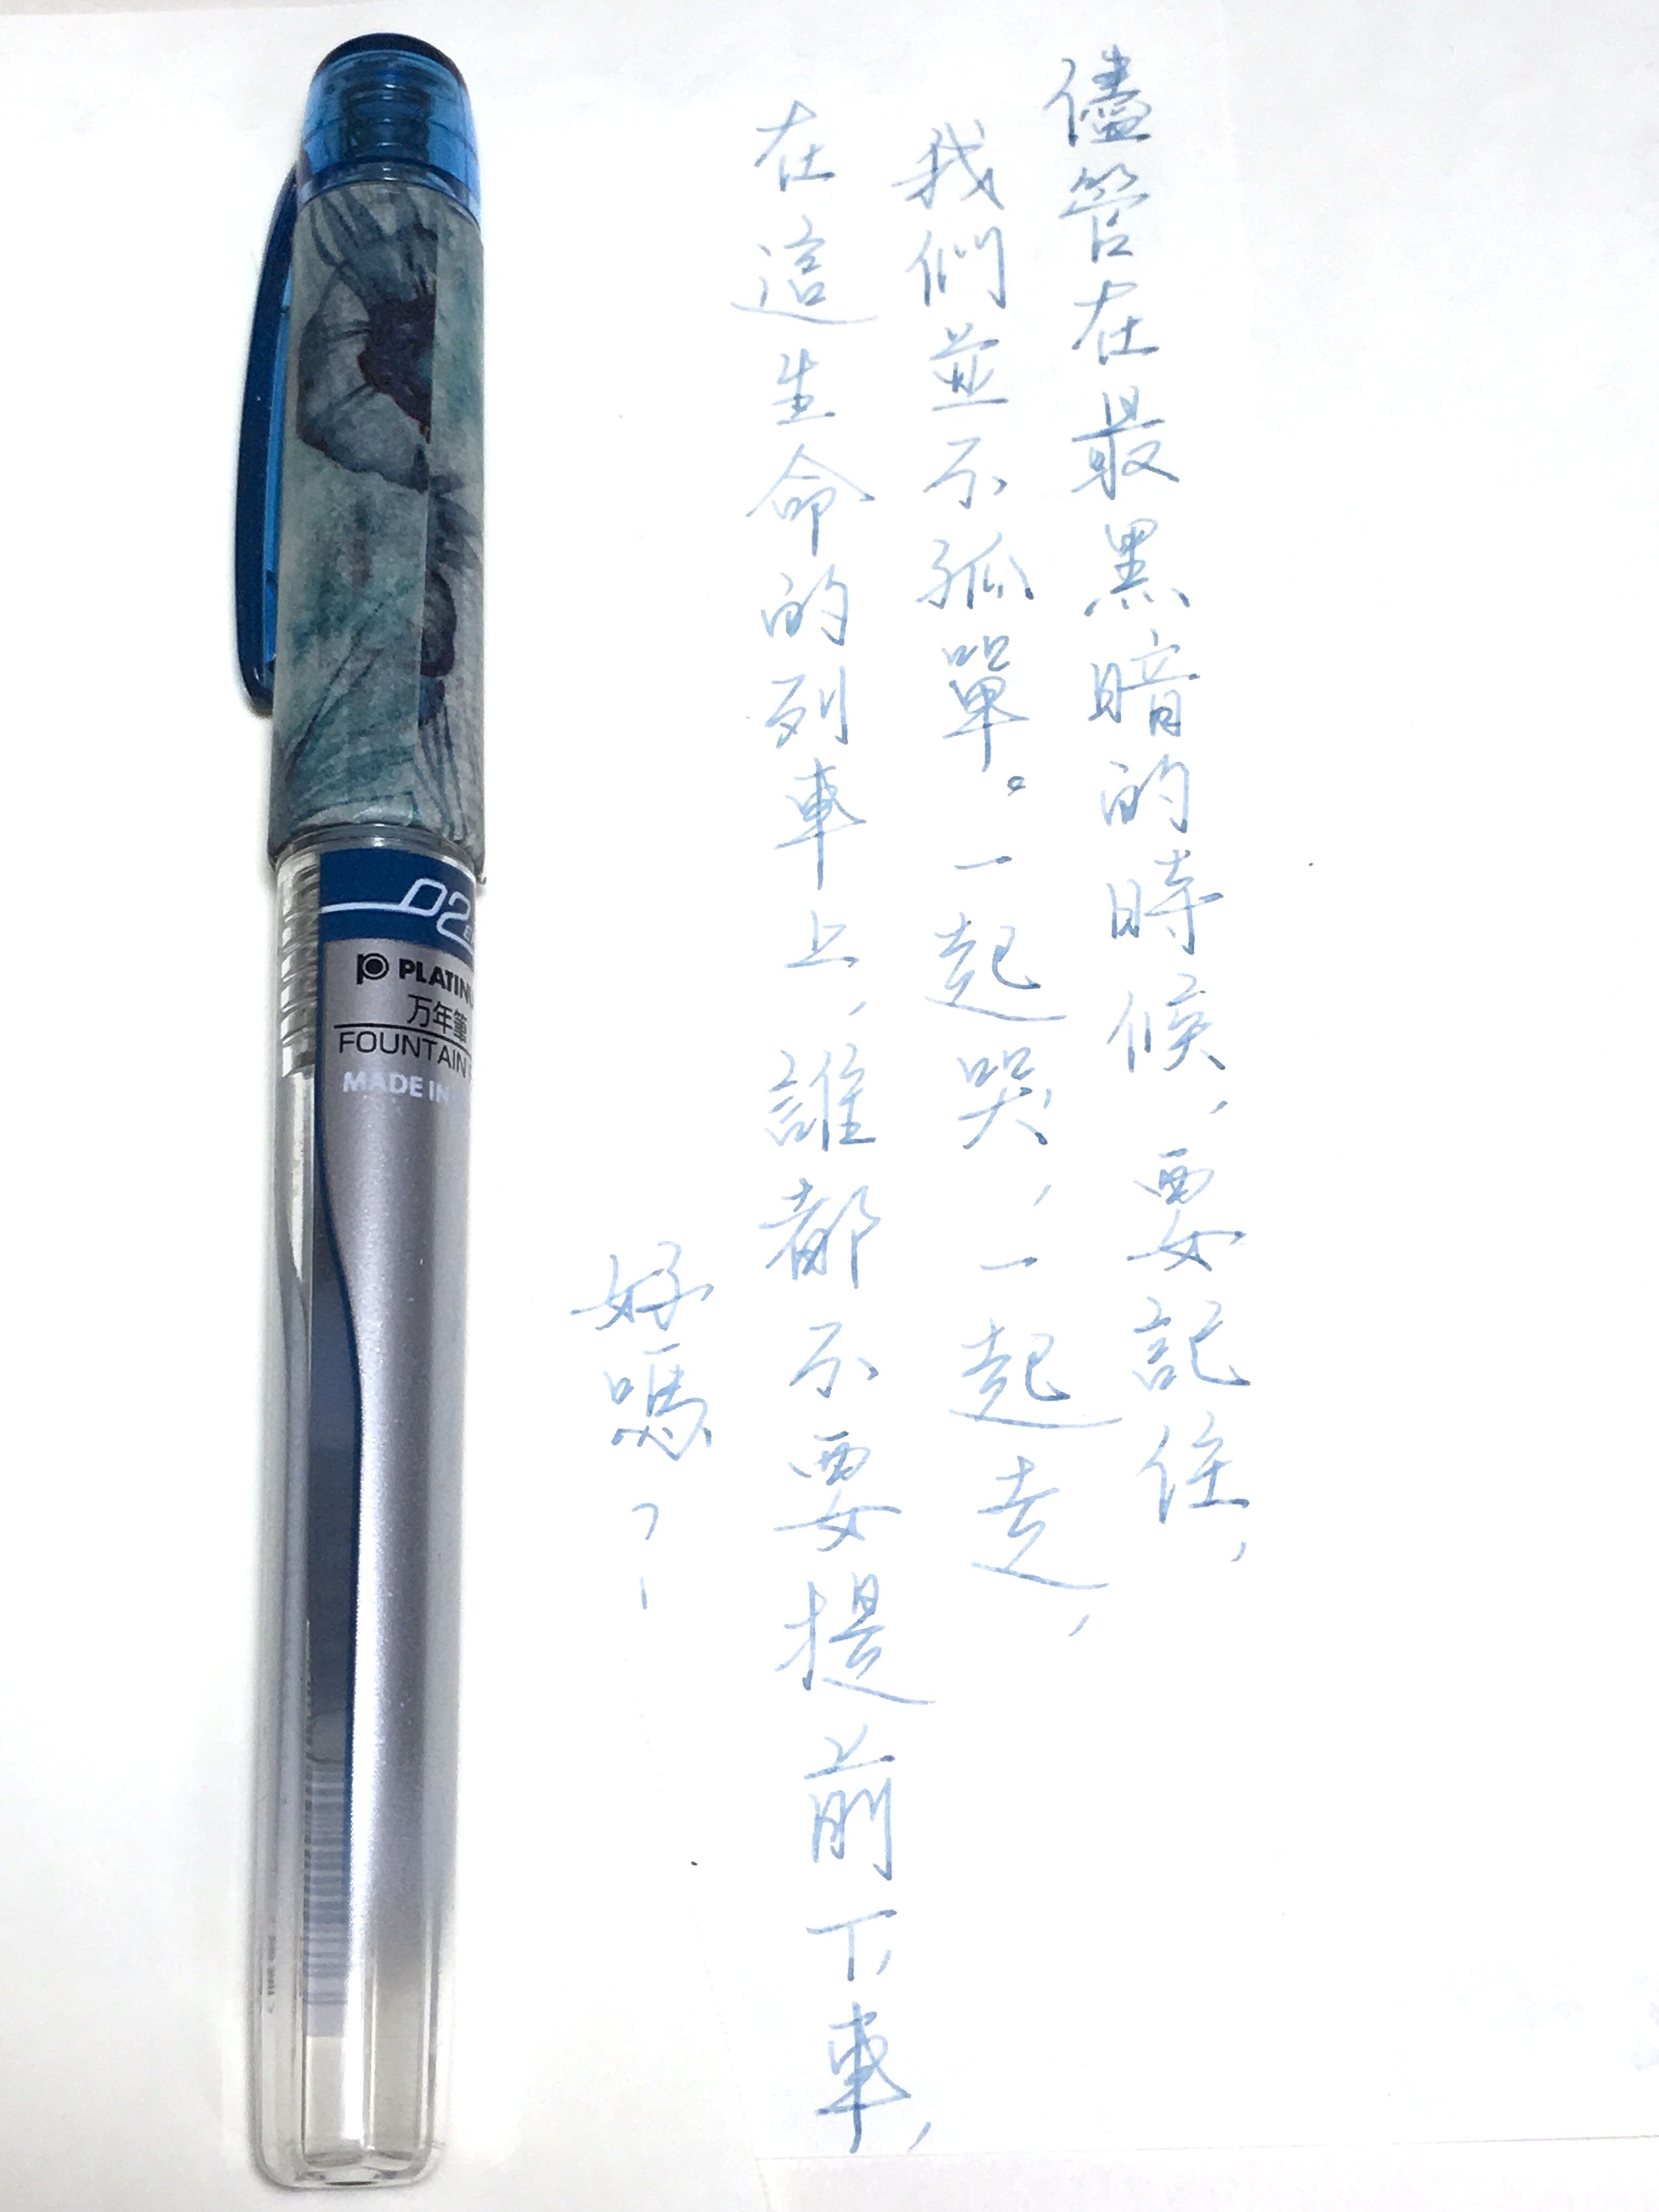 儘管在最黑暗的時候，要記住，
我們並不孤單。一起哭，一起走，
在這生命的列車上，誰都不要提前下車，
好嗎？
02
PLATINU
万年筆
FOUNTAIN
MADE IN